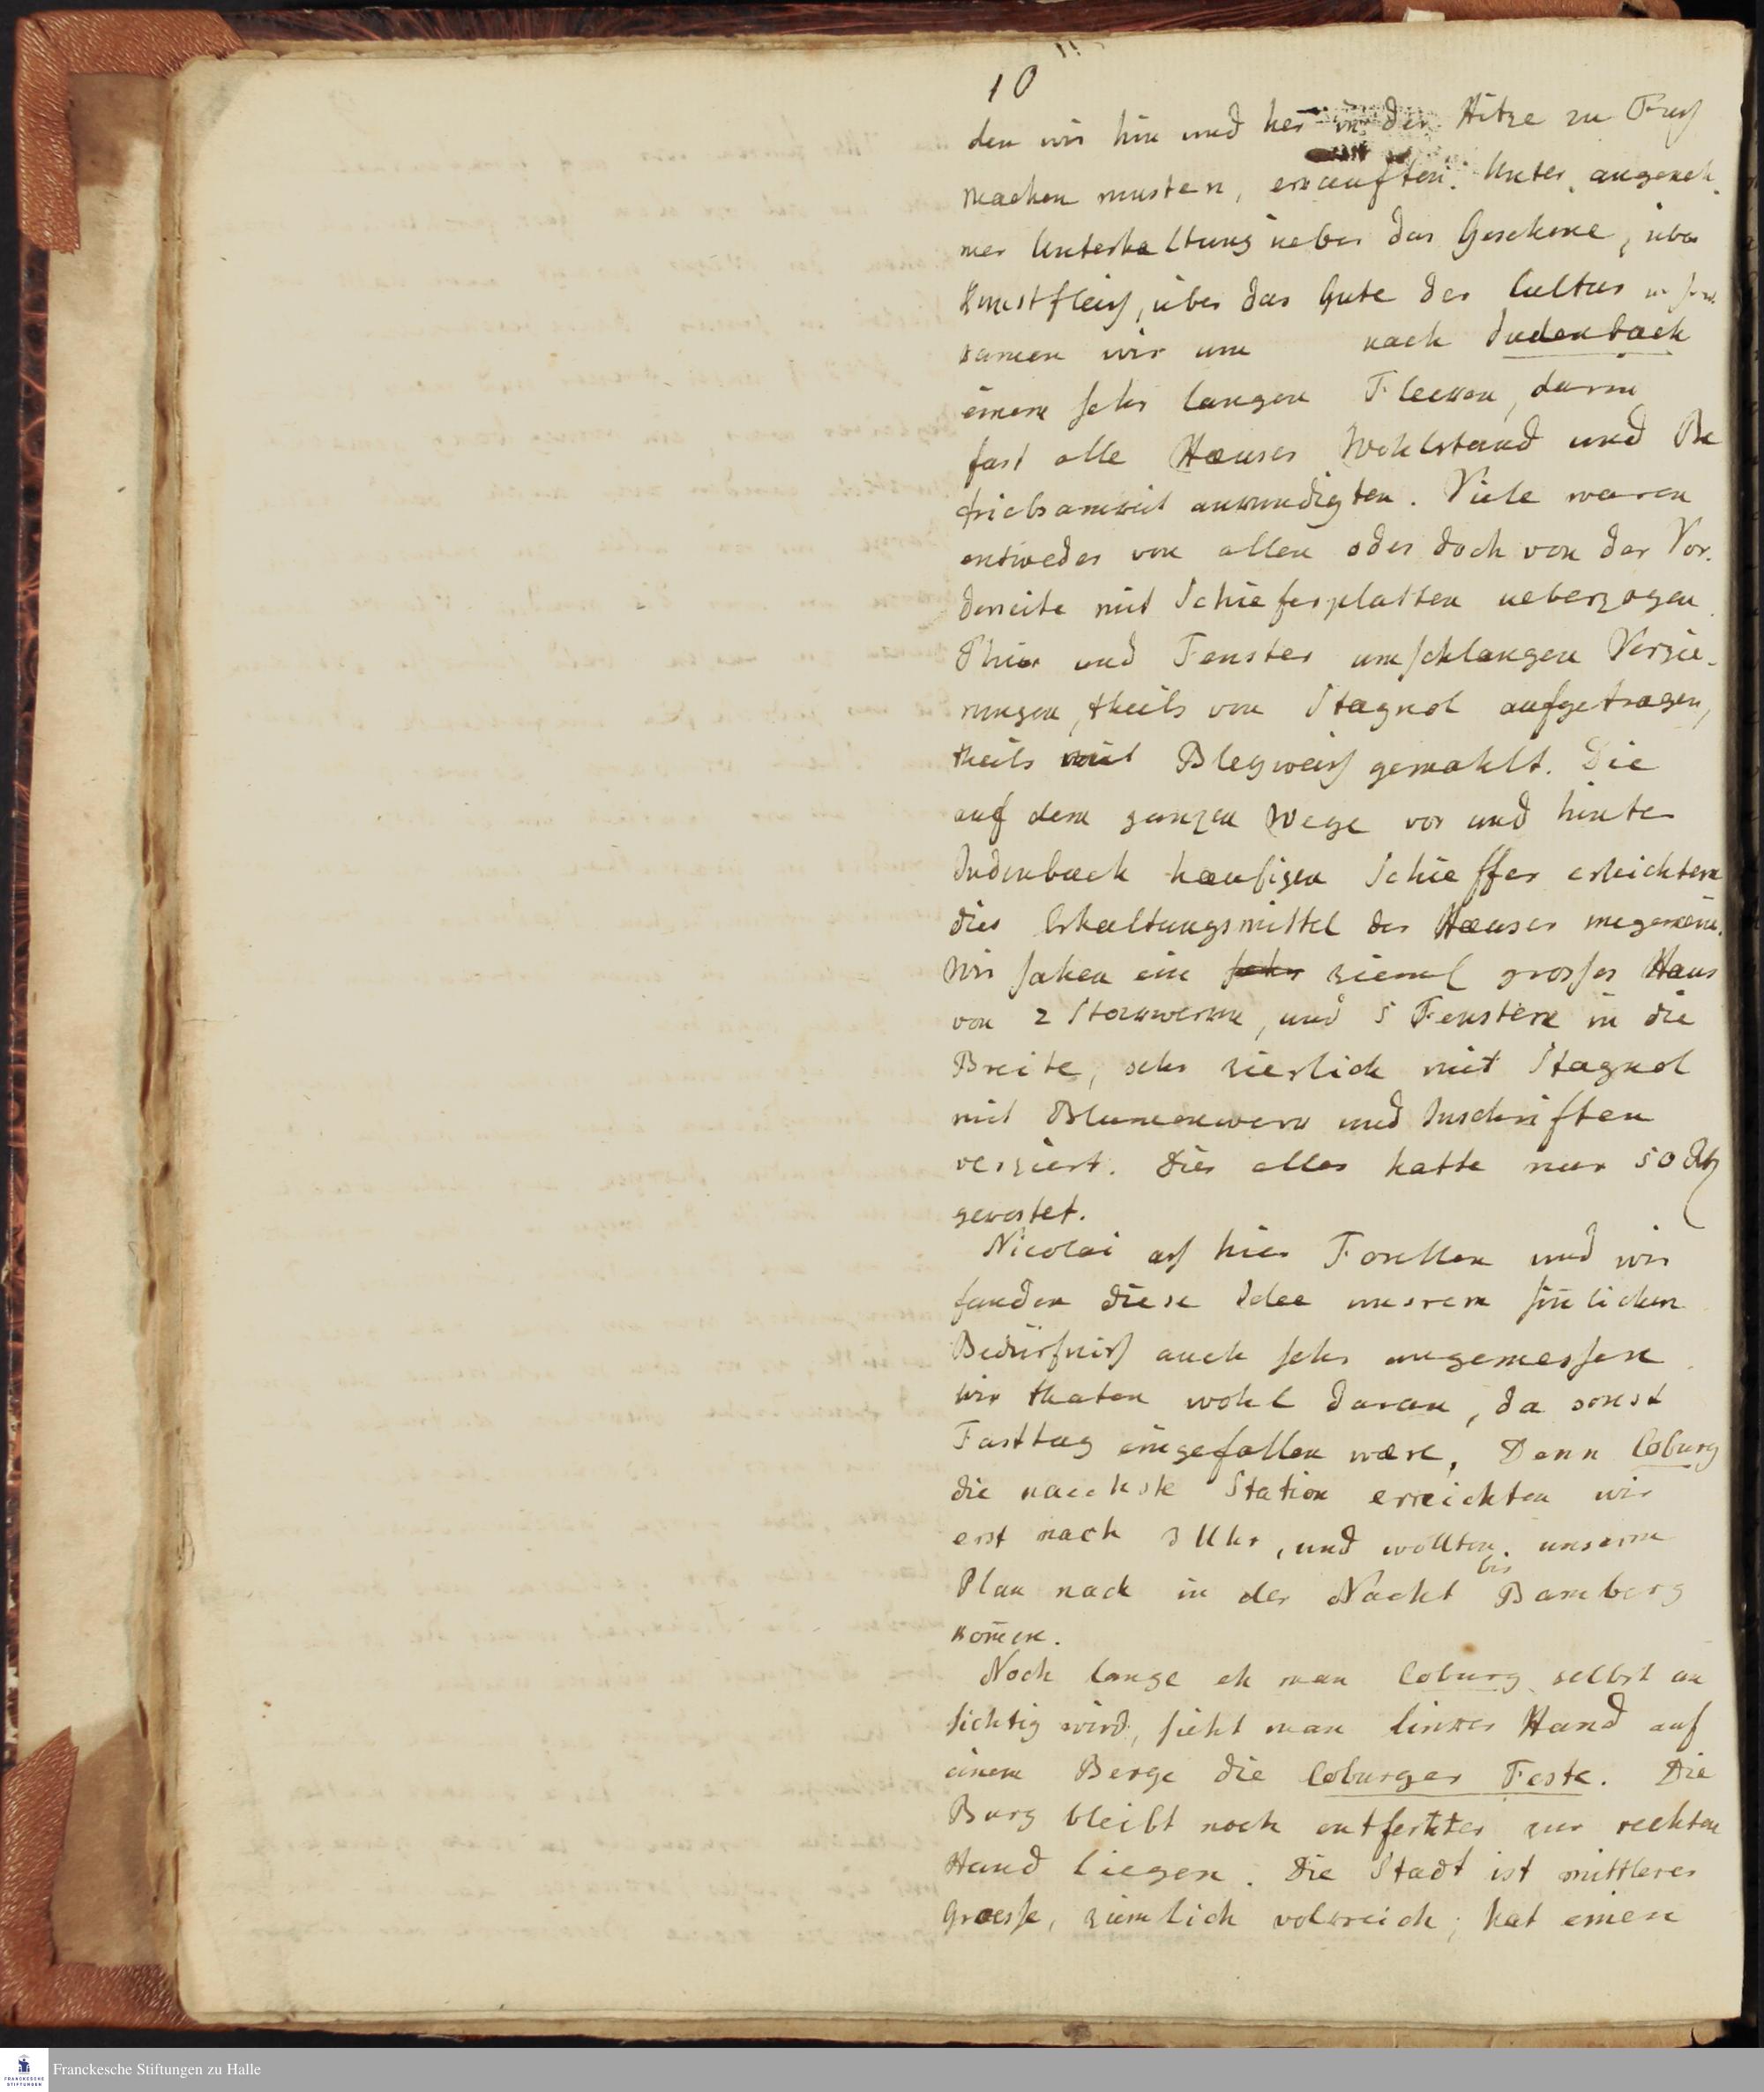 10
den wir hin und her in der Hitze zu Fuß
machen musten, erkauften. Unter angeneh¬
mer Unterhaltung ueber das Gesehene, über
Kunstfleiß, über das Gute der Cultur u. s. w.
kamen wir um nach Judenbach
einem sehr langen Flecken, darin
fast alle Haeuser Wohlstand und Be
triebsamkeit ankundigten. Viele waren
entweder von allen oder doch von der Vor¬
derseite mit Schieferplatten ueberzogen
Thür und Fenster umschlangen Verzie¬
rungen, theils von Stagnol aufgetragen,
theils mit Bleyweiß gemahlt. Die
auf dem ganzen Wege vor und hinter
Judenbach haeufigen Schieffer erleichtern
dies Erhaltungsmittel der Haeuser ungemein.
Wir sahen ein sehr zieml grosses Haus
von 2 Stockwerken, und 5 Fenstern in die
Breite, sehr zierlich mit Stagnol
mit Blumenwerk und Inschriften
verziert. Dies alles hatte nur 50 Rth
gekostet.
Nicolai aß hier Forellen und wir
fanden diese Idee unserem sinlichen
Bedürfniß auch sehr angemessen
wir thaten wohl daran, da sonst
Fasttag eingefallen wäre, Denn Coburg
die naechste Station erreichten wir
erst nach 3 Uhr, und wollten unserm
Plan nach in der Nacht bis Bamberg
kom̄en.
Noch lange eh man Coburg selbst an
sichtig wird, sieht man linker Hand auf
einem Berge die Coburger Feste. Die
Burg bleibt noch entfernter zur rechten
Hand liegen. Die Stadt ist mittlerer
Groesse, ziemlich volkreich, hat einen
Franckesche Stiftungen zu Halle